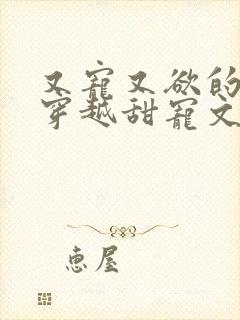 又寵又欲的
穿越甜寵文
恵屋